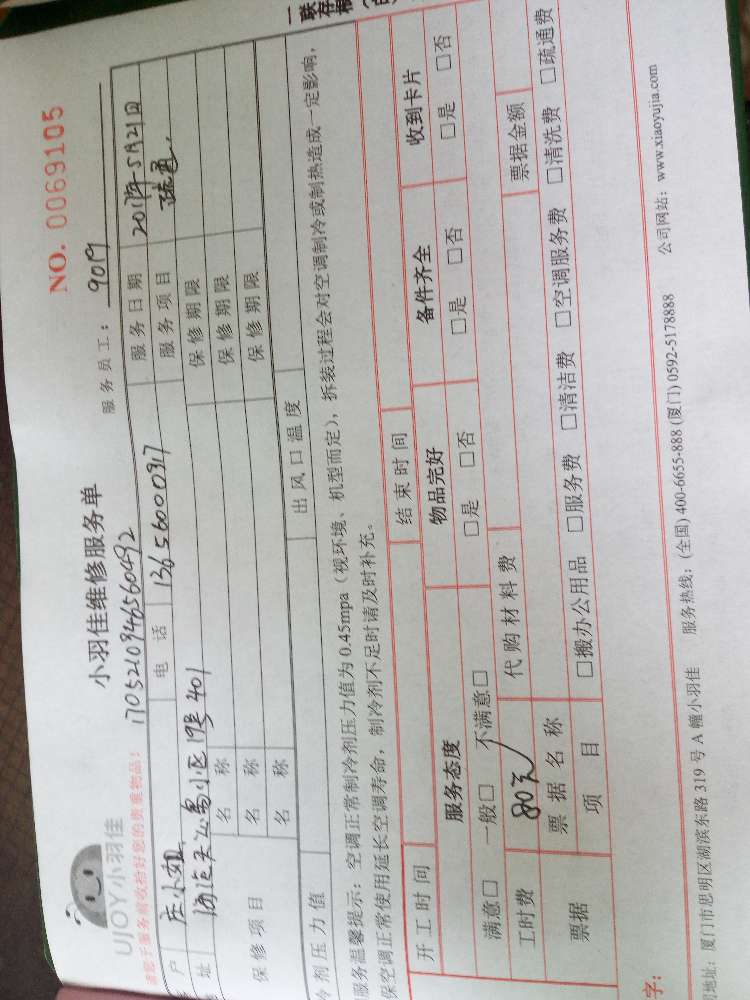 一联存根
UJOY小羽佳
小羽佳维修服务单
NO. 0069105
请您于服务前收拾好您的贵重物品:
1705210946560492
服务员工: 9019
户 庄小姐 电 话 13656000317 服务日期 2017年5月21日
址 401 服务项目 疏通
保修项目 名 称 保修期限
名 称 保修期限
名 称 保修期限
冷剂压力值 出风口温度
服务温馨提示:空调正常制冷剂压力值为0.45mpa(视环境、机型而定),拆装过程会对空调制冷或制热造成一定影响,
保空调正常使用延长空调寿命,制冷剂不足时请及时补充。
开工时间 结束时间
服务态度 物品完好 备件齐全 收到卡片
满意□ 一般□ 不满意□ □是 □否 □是 □否 □是 □否
工时费 80元 代购材料费
票据 票据名称 票据金额
项 目 □搬办公用品 □服务费 □清洁费 □空调服务费 □清洗费 □疏通费
字:
地址:厦门市思明区湖滨东路319号A幢小羽佳 服务热线:(全国) 400-6655-888 (厦门) 0592-5178888 公司网站:www.xiaoyujia.com